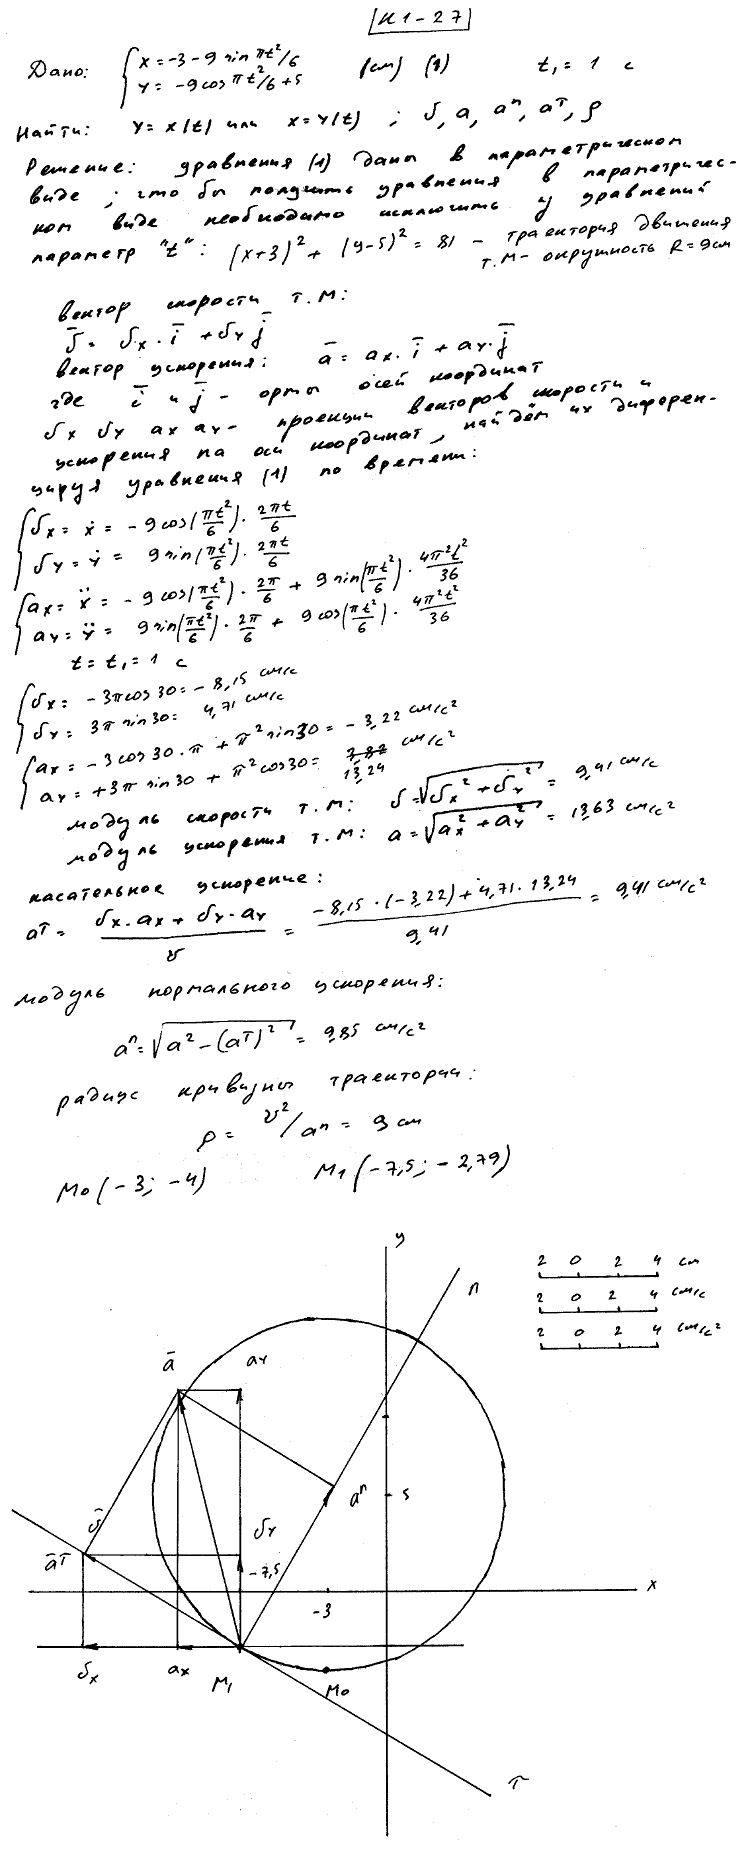 К1-27
Дано: { x = -3 - 9 sin πt²/6 (см) (1) t₁ = 1 с
y = -9 cos πt²/6 + 5
Найти: y = x(t) или x = y(t) ; υ, a, aⁿ, aᵀ, ρ
Решение: уравнения (1) даны в параметрическом
виде ; что бы получить уравнения в параметричес-
ком виде необходимо исключить у уравнений
параметр "t" : (x+3)² + (y-5)² = 81 - траектория движения
т. М - окружность R = 9 см
вектор скорости т. М:
ῡ = υx · i̅ + υy j̅
вектор ускорения: a̅ = ax · i̅ + ay · j̅
где i̅ и j̅ - орты осей координат
υx υy ax ay - проекции векторов скорости и
ускорения на оси координат, найдём их диферен-
цируя уравнения (1) по времени:
{ υx = ẋ = -9 cos(πt²/6) · 2πt/6
υy = ẏ = 9 sin(πt²/6) · 2πt/6
{ ax = ẍ = -9 cos(πt²/6) · 2π/6 + 9 sin(πt²/6) · 4π²t²/36
ay = ÿ = 9 sin(πt²/6) · 2π/6 + 9 cos(πt²/6) · 4π²t²/36
t = t₁ = 1 с
{ υx = -3π cos 30 = -8,15 см/с
υy = 3π sin 30 = 4,71 см/с
{ ax = -3 cos 30 · π + π² sin 30 = -3,22 см/с²
ay = +3π sin 30 + π² cos 30 = 13,24 см/с²
модуль скорости т. М: υ = √(υx² + υy²) = 9,41 см/с
модуль ускорения т. М: a = √(ax² + ay²) = 13,63 см/с²
касательное ускорение:
aᵀ = (υx · ax + υy · ay)/υ = (-8,15 · (-3,22) + 4,71 · 13,24)/9,41 = 9,41 см/с²
модуль нормального ускорения:
aⁿ = √(a² - (aᵀ)²) = 9,85 см/с²
радиус кривизны траектории:
ρ = υ²/aⁿ = 9 см
M₀ (-3; -4) M₁ (-7,5; -2,79)
y
2 0 2 4 см
n
2 0 2 4 см/с
2 0 2 4 см/с²
a̅ ay
aⁿ 5
ῡ υy
a̅ᵀ -7,5
x
-3
υx ax M₁ M₀
τ